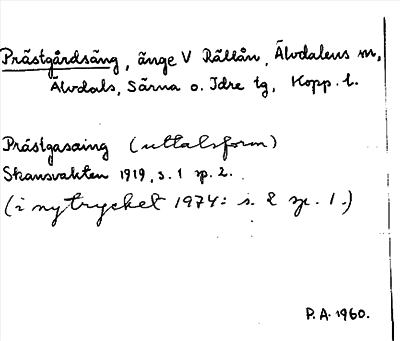 Prästgårdsäng, änge V Rällån, Älvdalens m,
Älvdals, Särna o. Idre tg, Kopp. l.
Prästgasaing (uttalsform)
Skansvakten 1919, s. 1 sp. 2.
(i nytrycket 1974: s. 2 sp. 1.)
P.A. 1960.